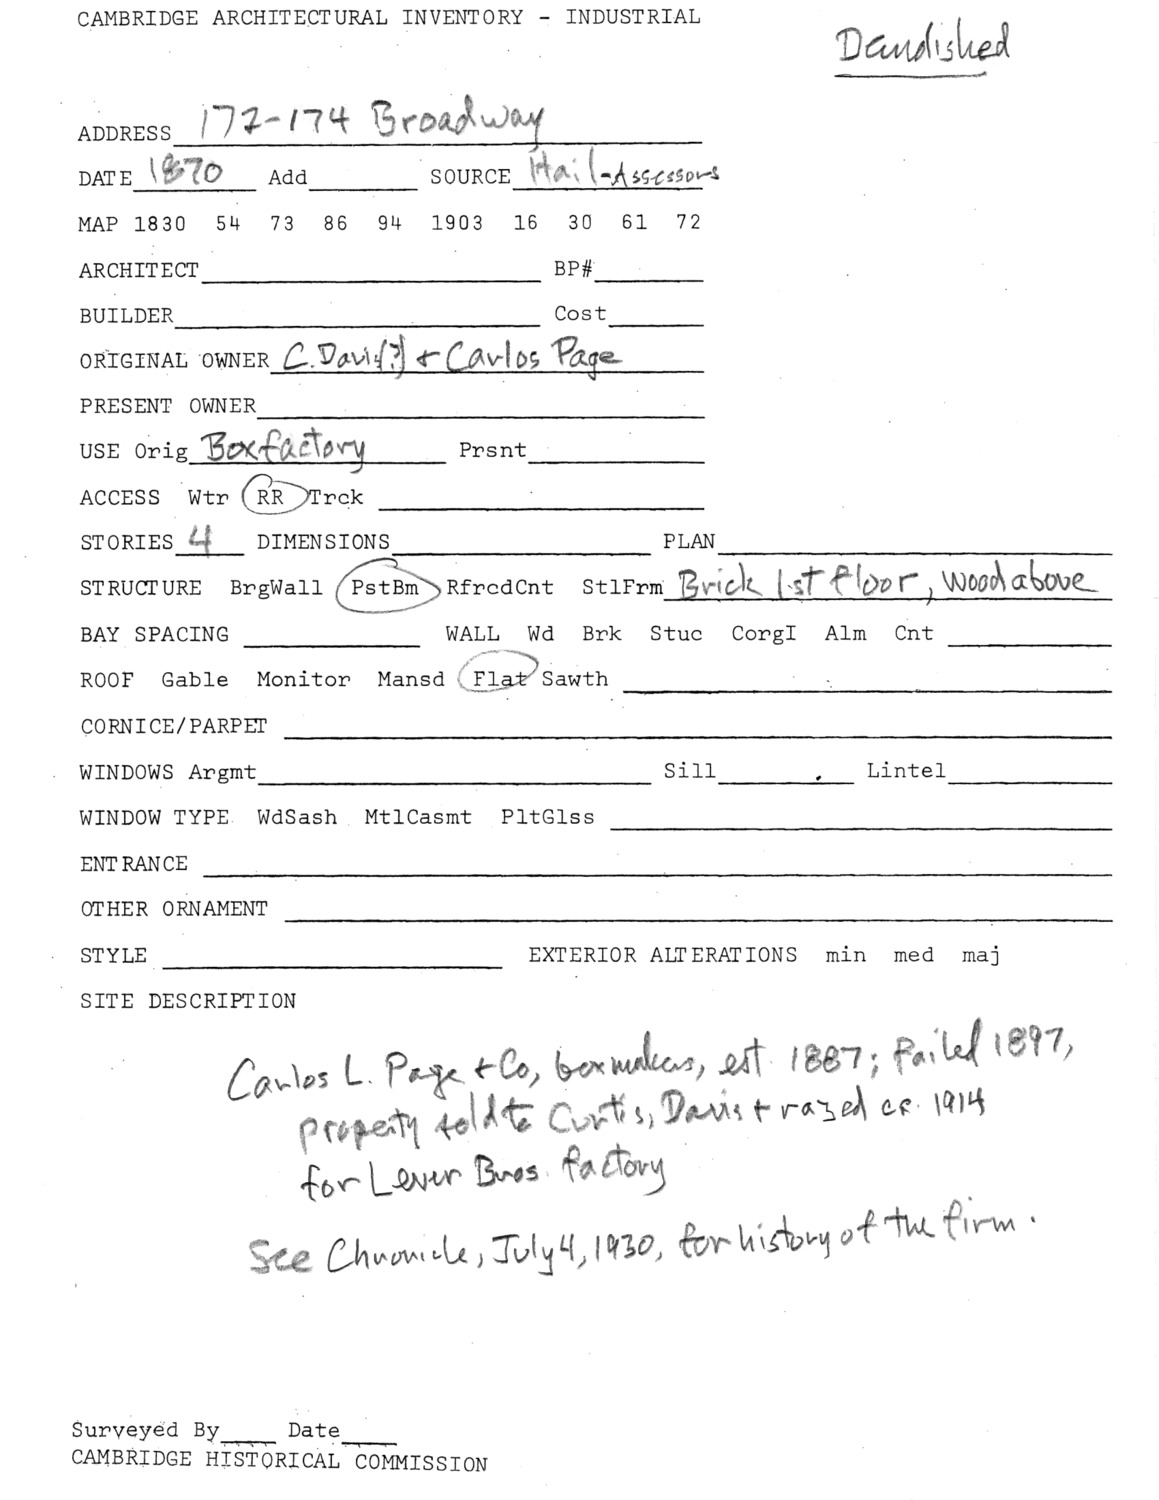 CAMBRIDGE ARCHITECTURAL INVENTORY - INDUSTRIAL
Demolished
ADDRESS 172-174 Broadway
DATE 1870 Add SOURCE Hail-Assessors
MAP 1830 54 73 86 94 1903 16 30 61 72
ARCHITECT BP#
BUILDER Cost
ORIGINAL OWNER C. Davis[?] + Carlos Page
PRESENT OWNER
USE Orig Box factory Prsnt
ACCESS Wtr RR Trck
STORIES 4 DIMENSIONS PLAN
STRUCTURE BrgWall PstBm RfrcdCnt StlFrm Brick 1st floor, wood above
BAY SPACING WALL Wd Brk Stuc CorgI Alm Cnt
ROOF Gable Monitor Mansd Flat Sawth
CORNICE/PARPET
WINDOWS Argmt Sill Lintel
WINDOW TYPE WdSash MtlCasmt PltGlss
ENTRANCE
OTHER ORNAMENT
STYLE EXTERIOR ALTERATIONS min med maj
SITE DESCRIPTION
Carlos L. Page + Co, boxmakers, est 1887; failed 1897,
property sold to Curtis, Davis + razed ca. 1914
for Lever Bros. factory
See Chronicle, July 4, 1930, for history of the firm.
Surveyed By Date
CAMBRIDGE HISTORICAL COMMISSION